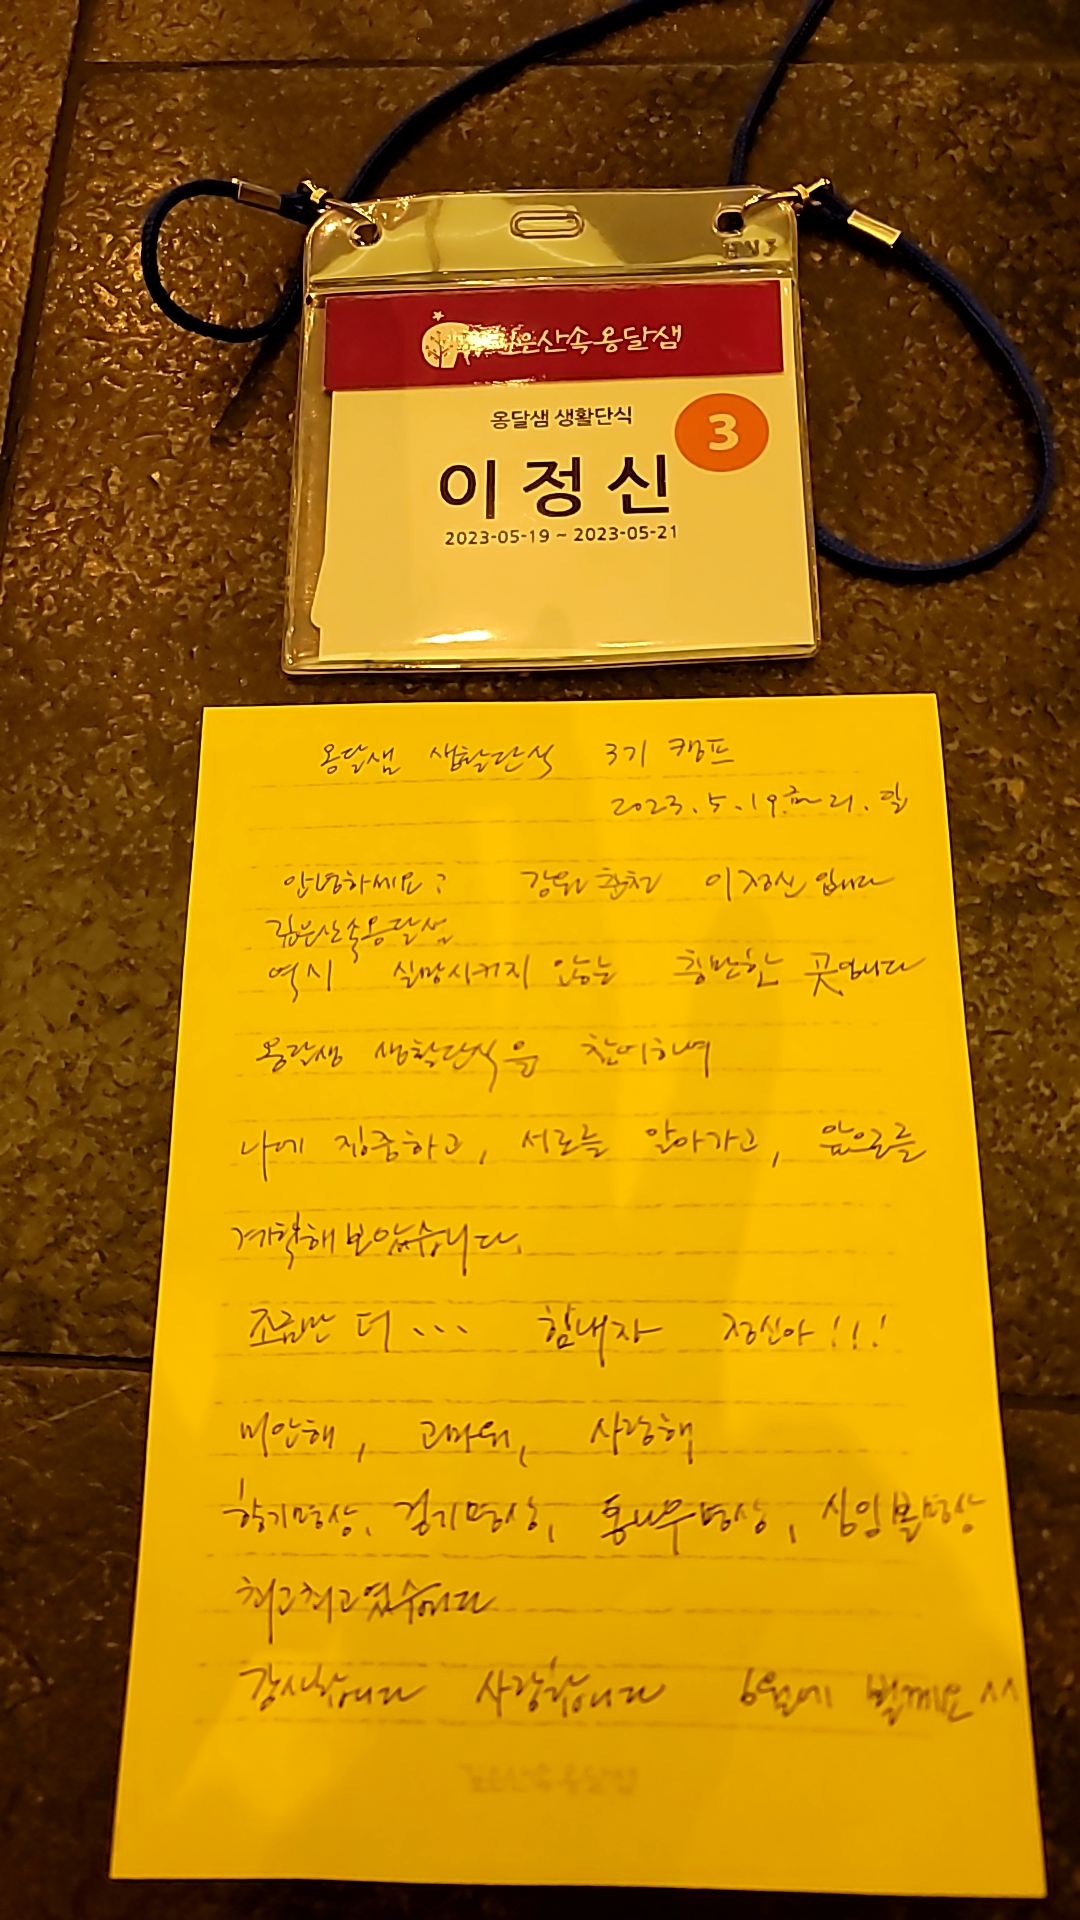 깊은산속옹달샘
옹달샘 생활단식
3
이정신
2023-05-19 ~ 2023-05-21
옹달샘 생활단식 3기 캠프
2023. 5. 19.금~21. 일
안녕하세요? 강원 춘천 이정신입니다
깊은산속옹달샘
역시 실망시키지 않는 충만한 곳입니다
옹달샘 생활단식을 참여하여
나에 집중하고, 서로를 알아가고, 앞으로를
계획해보았습니다.
조금만 더... 힘내자 정신아!!!
미안해, 고마워, 사랑해
향기명상, 걷기명상, 통나무명상, 싱잉볼명상
최고최고였습니다
감사합니다 사랑합니다 6월에 뵐께요^^
깊은산속옹달샘